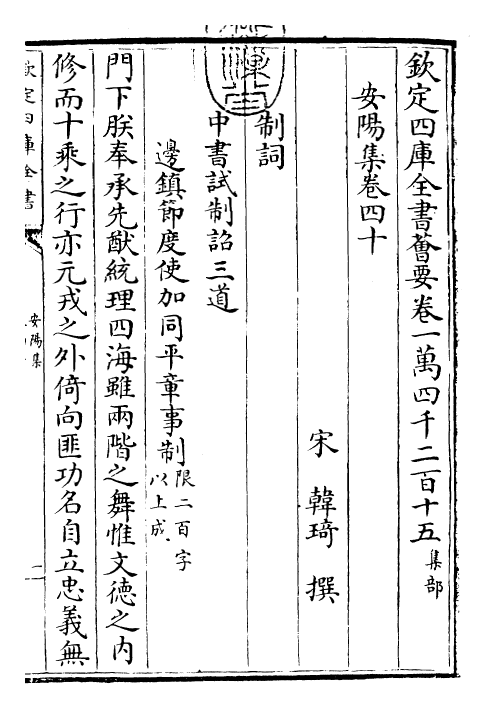 欽定四庫全書薈要卷一萬四千二百十五 集部
安陽集卷四十
宋 韓琦 撰
制詞
中書試制詔三道
邊鎮節度使加同平章事制 限二百字以上成
門下朕奉承先猷統理四海雖兩階之舞惟文德之内
修而十乘之行亦元戎之外倚向匪功名自立忠義無
欽定四庫全書
安陽集